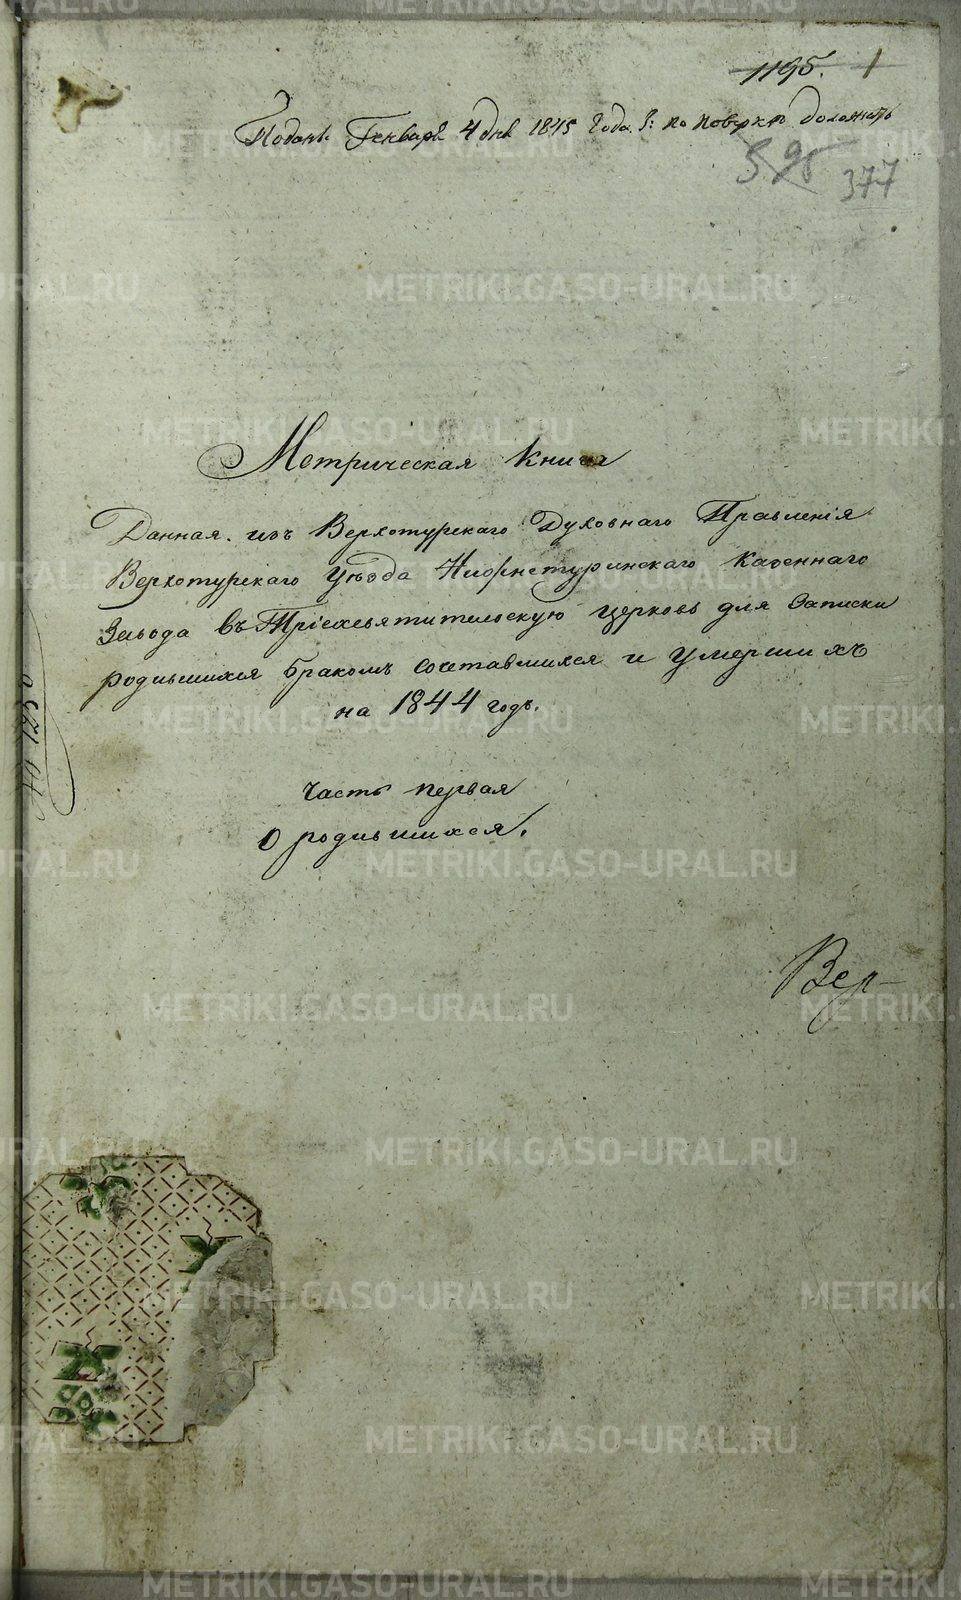 1195. 1
Поданъ Генваря 4 дня 1845 года. По поверкѣ доложить
377
Метрическая Книга
Данная изъ Верхотурскаго Духовнаго Правленія
Верхотурскаго уѣзда Нижнетуринскаго Казеннаго
Завода въ Трiехсвятительскую церковь для Записки
родившихся бракомъ сочетавшихся и умершихъ
на 1844 годъ.
Часть первая
О родившихся.
Вер-
METRIKI.GASO-URAL.RU